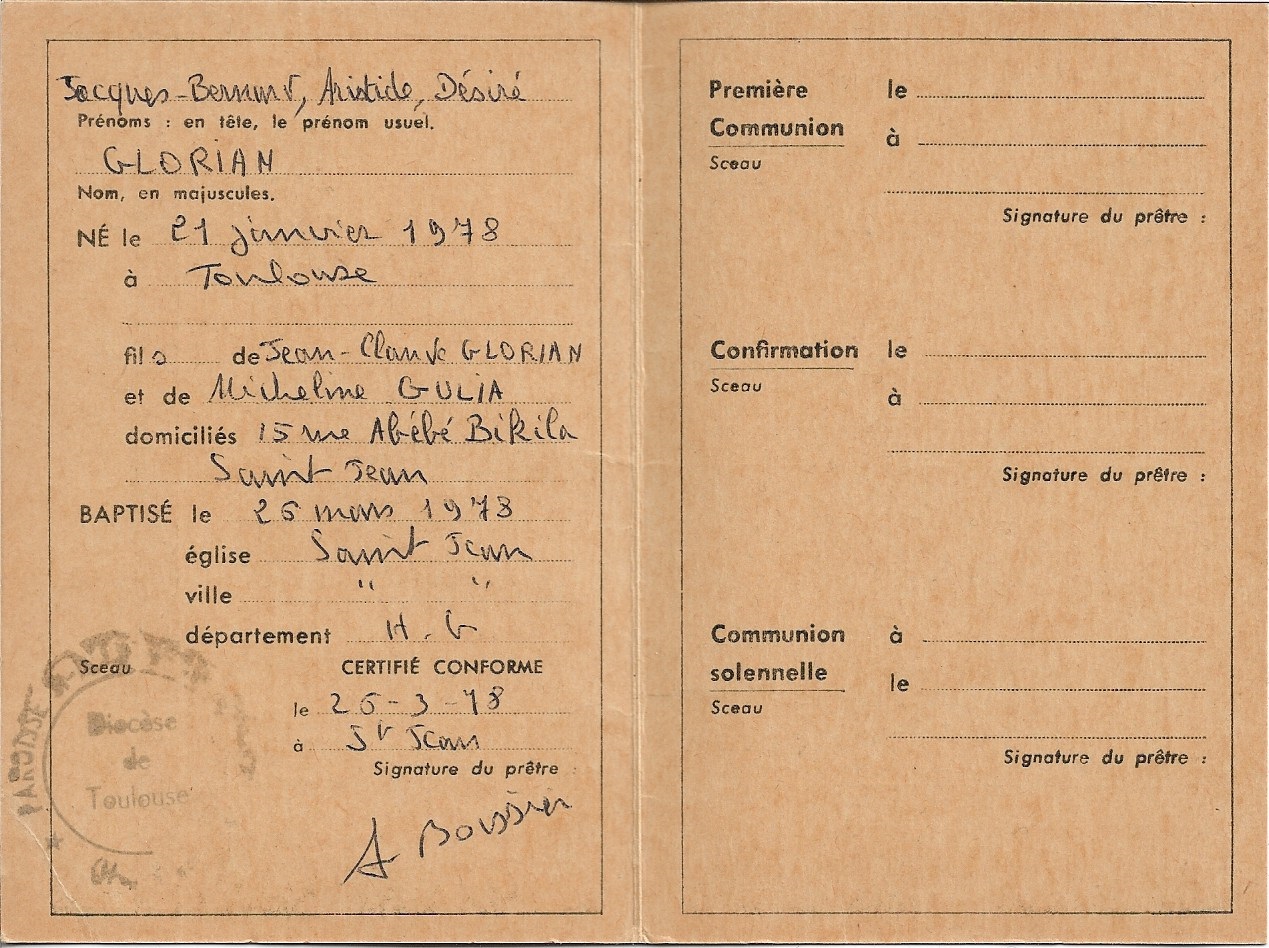 Jacques-Bernard, Aristide, Désiré
Prénoms : en tête, le prénom usuel.
GLORIAN
Nom, en majuscules.
NÉ le 21 janvier 1978
à Toulouse
fils de Jean-Claude GLORIAN
et de Micheline GULIA
domiciliés 15 rue Abébé Bikila
Saint Jean
BAPTISÉ le 26 mars 1978
église Saint Jean
ville " "
département H.G
Sceau CERTIFIÉ CONFORME
le 26-3-78
à St Jean
Signature du prêtre :
A Boussier
PAROISSE
Diocèse
de
Toulouse
Première le
Communion à
Sceau
Signature du prêtre :
Confirmation le
Sceau à
Signature du prêtre :
Communion à
solennelle le
Sceau
Signature du prêtre :